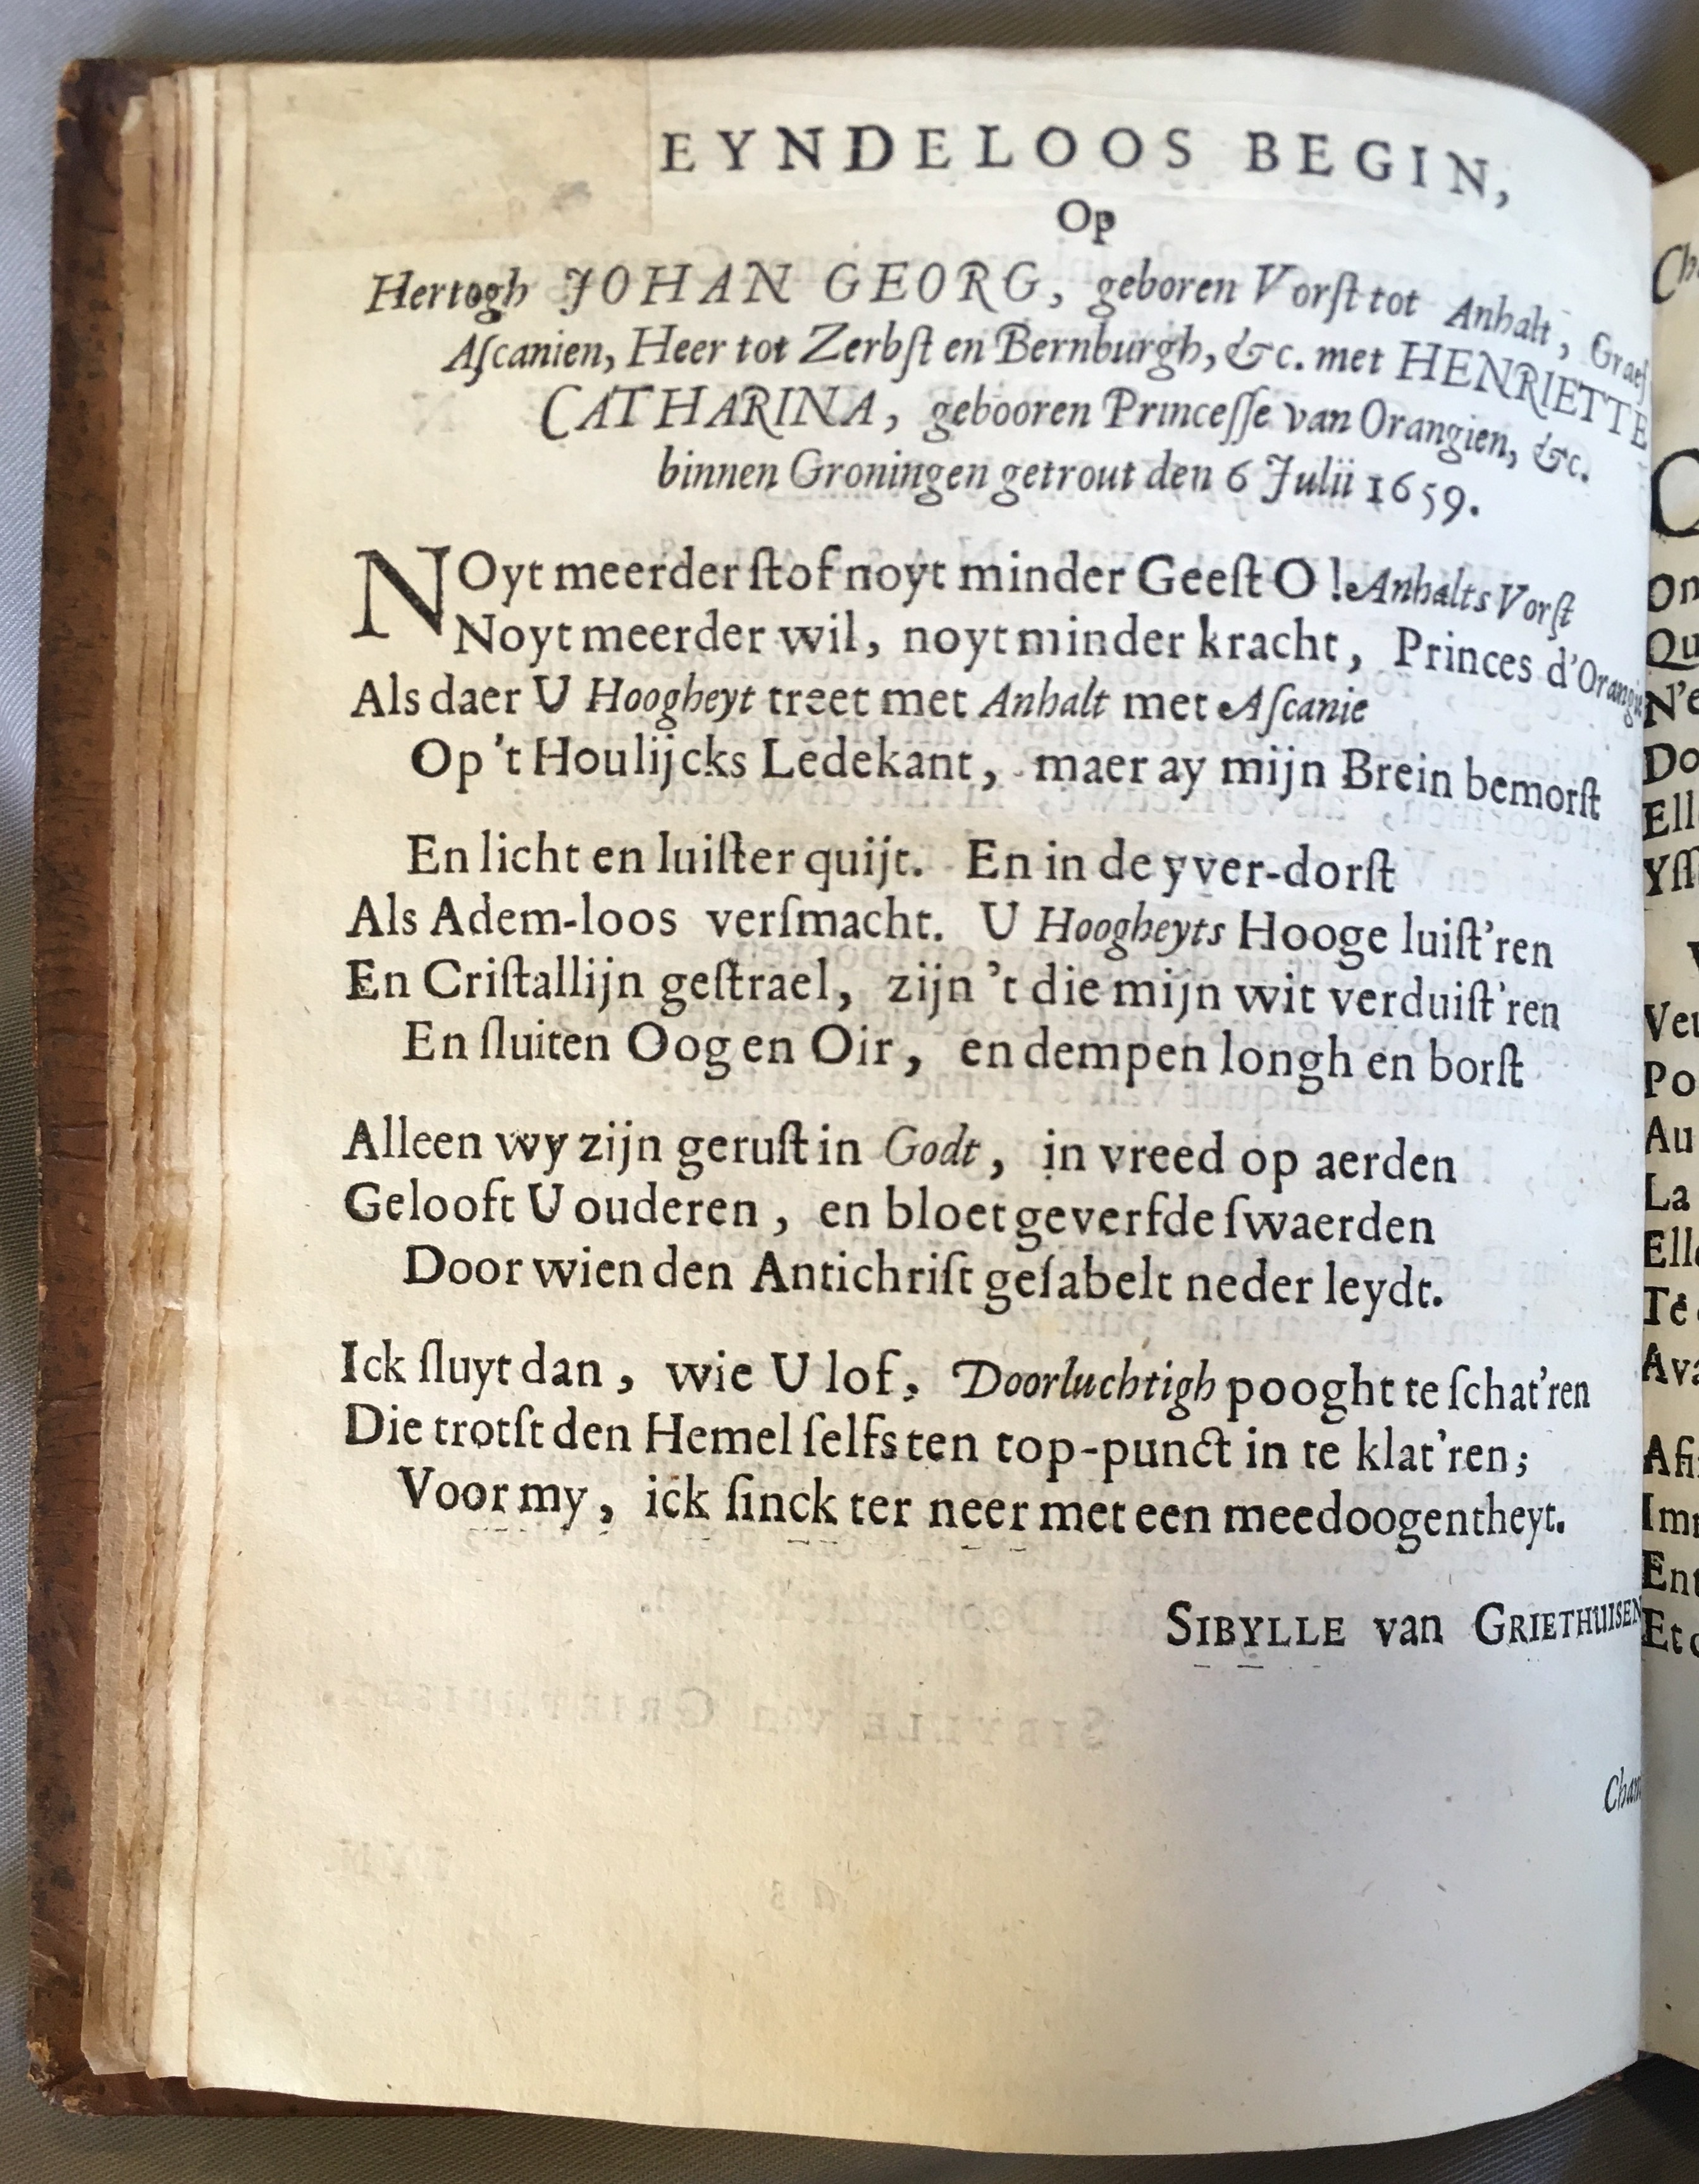 EYNDELOOS BEGIN,
Op
Hertogh JOHAN GEORG, geboren Vorſt tot Anhalt, Graef
Aſcanien, Heer tot Zerbſt en Bernburgh, &c. met HENRIETTE
CATHARINA, gebooren Princeſſe van Orangien, &c.
binnen Groningen getrout den 6 Julii 1659.
NOyt meerder ſtof noyt minder Geeſt O! Anhalts Vorſt
Noyt meerder wil, noyt minder kracht, Princes d'Orangie
Als daer U Hoogheyt treet met Anhalt met Aſcanie
Op 't Houlijcks Ledekant, maer ay mijn Brein bemorſt
En licht en luiſter quijt. En in de yver-dorſt
Als Adem-loos verſmacht. U Hoogheyts Hooge luiſt'ren
En Criſtallijn geſtrael, zijn 't die mijn wit verduiſt'ren
En ſluiten Oog en Oir, en dempen longh en borſt
Alleen wy zijn geruſt in Godt, in vreed op aerden
Gelooft U ouderen, en bloet geverfde ſwaerden
Door wien den Antichriſt geſabelt neder leydt.
Ick ſluyt dan, wie U lof, Doorluchtigh pooght te ſchat'ren
Die trotſt den Hemel ſelfs ten top-punct in te klat'ren;
Voor my, ick ſinck ter neer met een meedoogentheyt.
SIBYLLE van GRIETHUISEN
Cham
On
Qu
N'e
Do
Ell
Yſſ
Ver
Po
Au
La
Elle
Te
Ava
Afi
Imm
Ent
Et